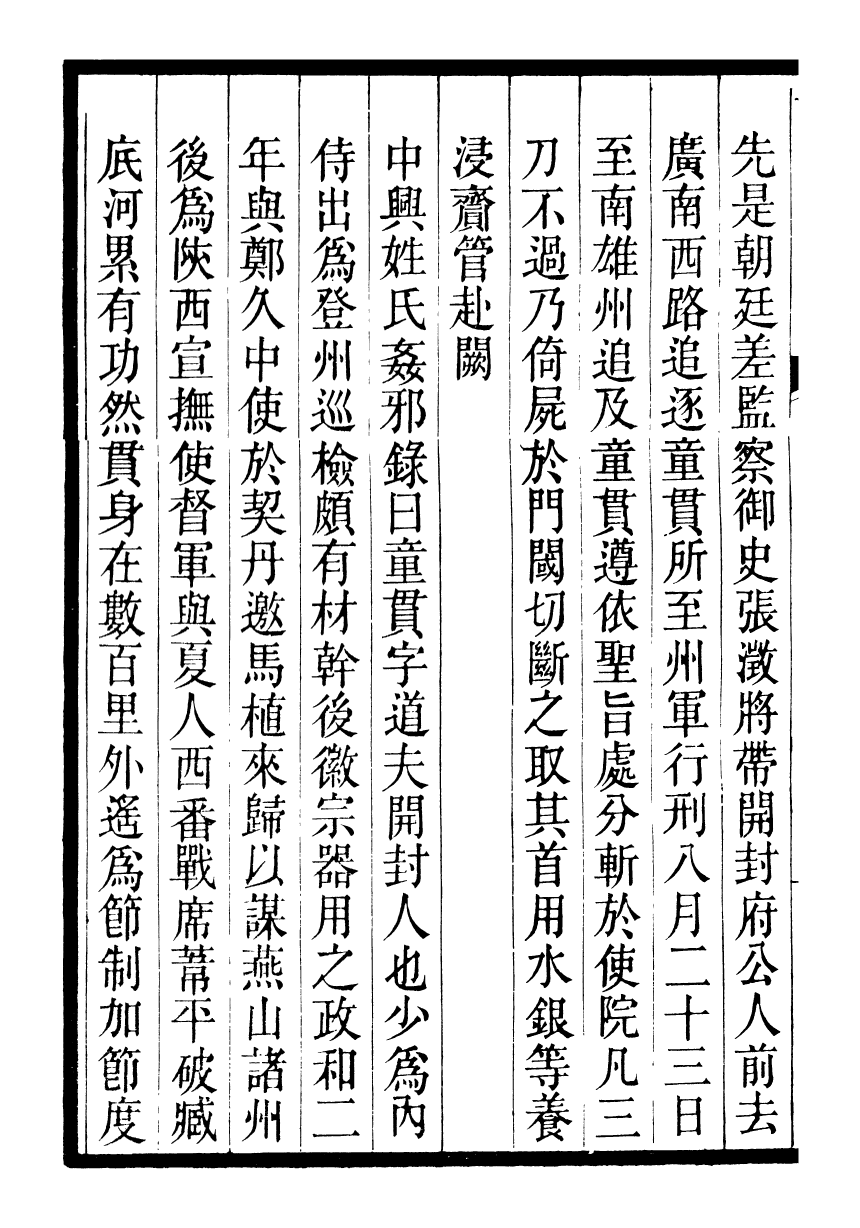 先是朝廷差監察御史張澂將帶開封府公人前去
廣南西路追逐童貫所至州軍行刑八月二十三日
至南雄州追及童貫遵依聖旨處分斬於使院凡三
刀不過乃倚屍於門閾切斷之取其首用水銀等養
浸齎管赴闕
中興姓氏姦邪錄曰童貫字道夫開封人也少爲內
侍出爲登州巡檢頗有材幹後徽宗器用之政和二
年與鄭久中使於契丹邀馬植來歸以謀燕山諸州
後爲陜西宣撫使督軍與夏人西番戰席葦平破臧
底河累有功然貫身在數百里外遙爲節制加節度